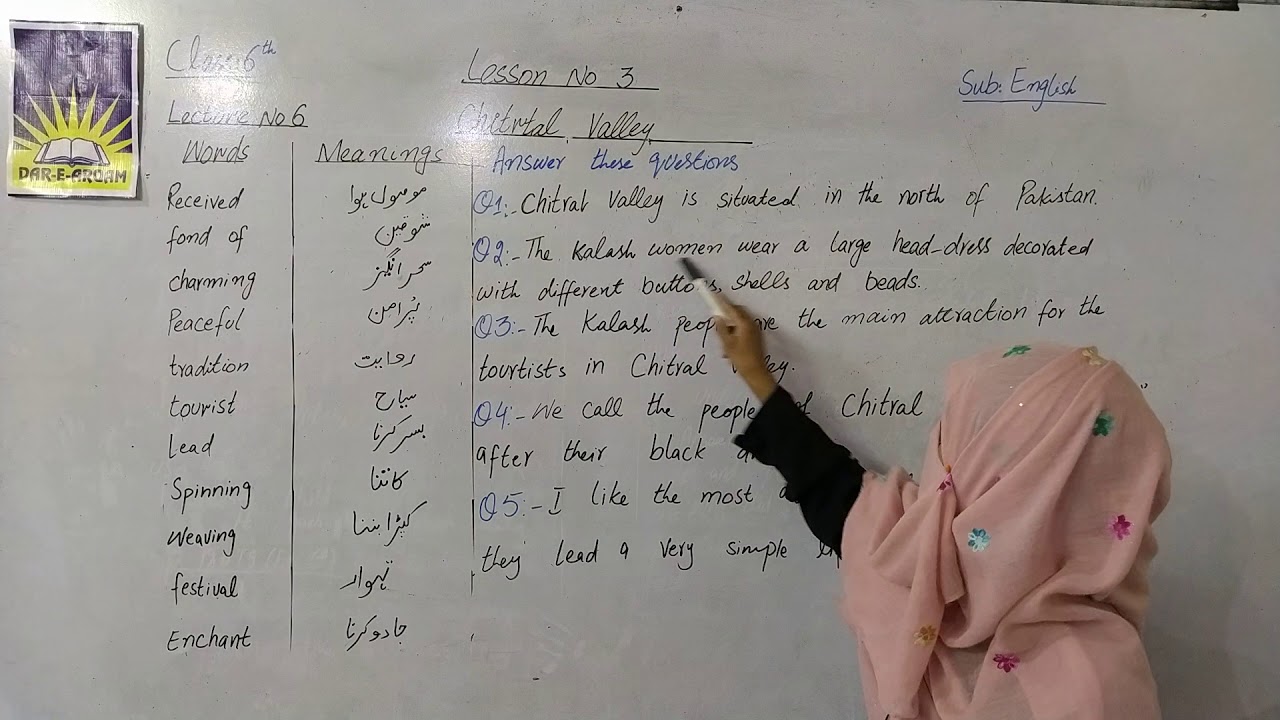 DAR-E-ARQAM
Class 6th
Lesson No 3
Sub: English
Lecture No 6
Chitrtal Valley
Words Meanings
Received موصول ہوا
fond of شوقین
charming سحر انگیز
Peaceful پُرامن
tradition روایت
tourist سیاح
Lead بسر کرنا
Spinning کاتنا
Weaving کپڑا بننا
festival تہوار
Enchant جادو کرنا
Answer these questions
Q1:- Chitral Valley is situated in the north of Pakistan.
Q2:- The Kalash women wear a large head-dress decorated
with different buttons, shells and beads.
Q3:- The Kalash people are the main attraction for the
tourtists in Chitral Valley.
Q4:- We call the people of Chitral
after their black
Q5:- I like the most
they lead a very simple